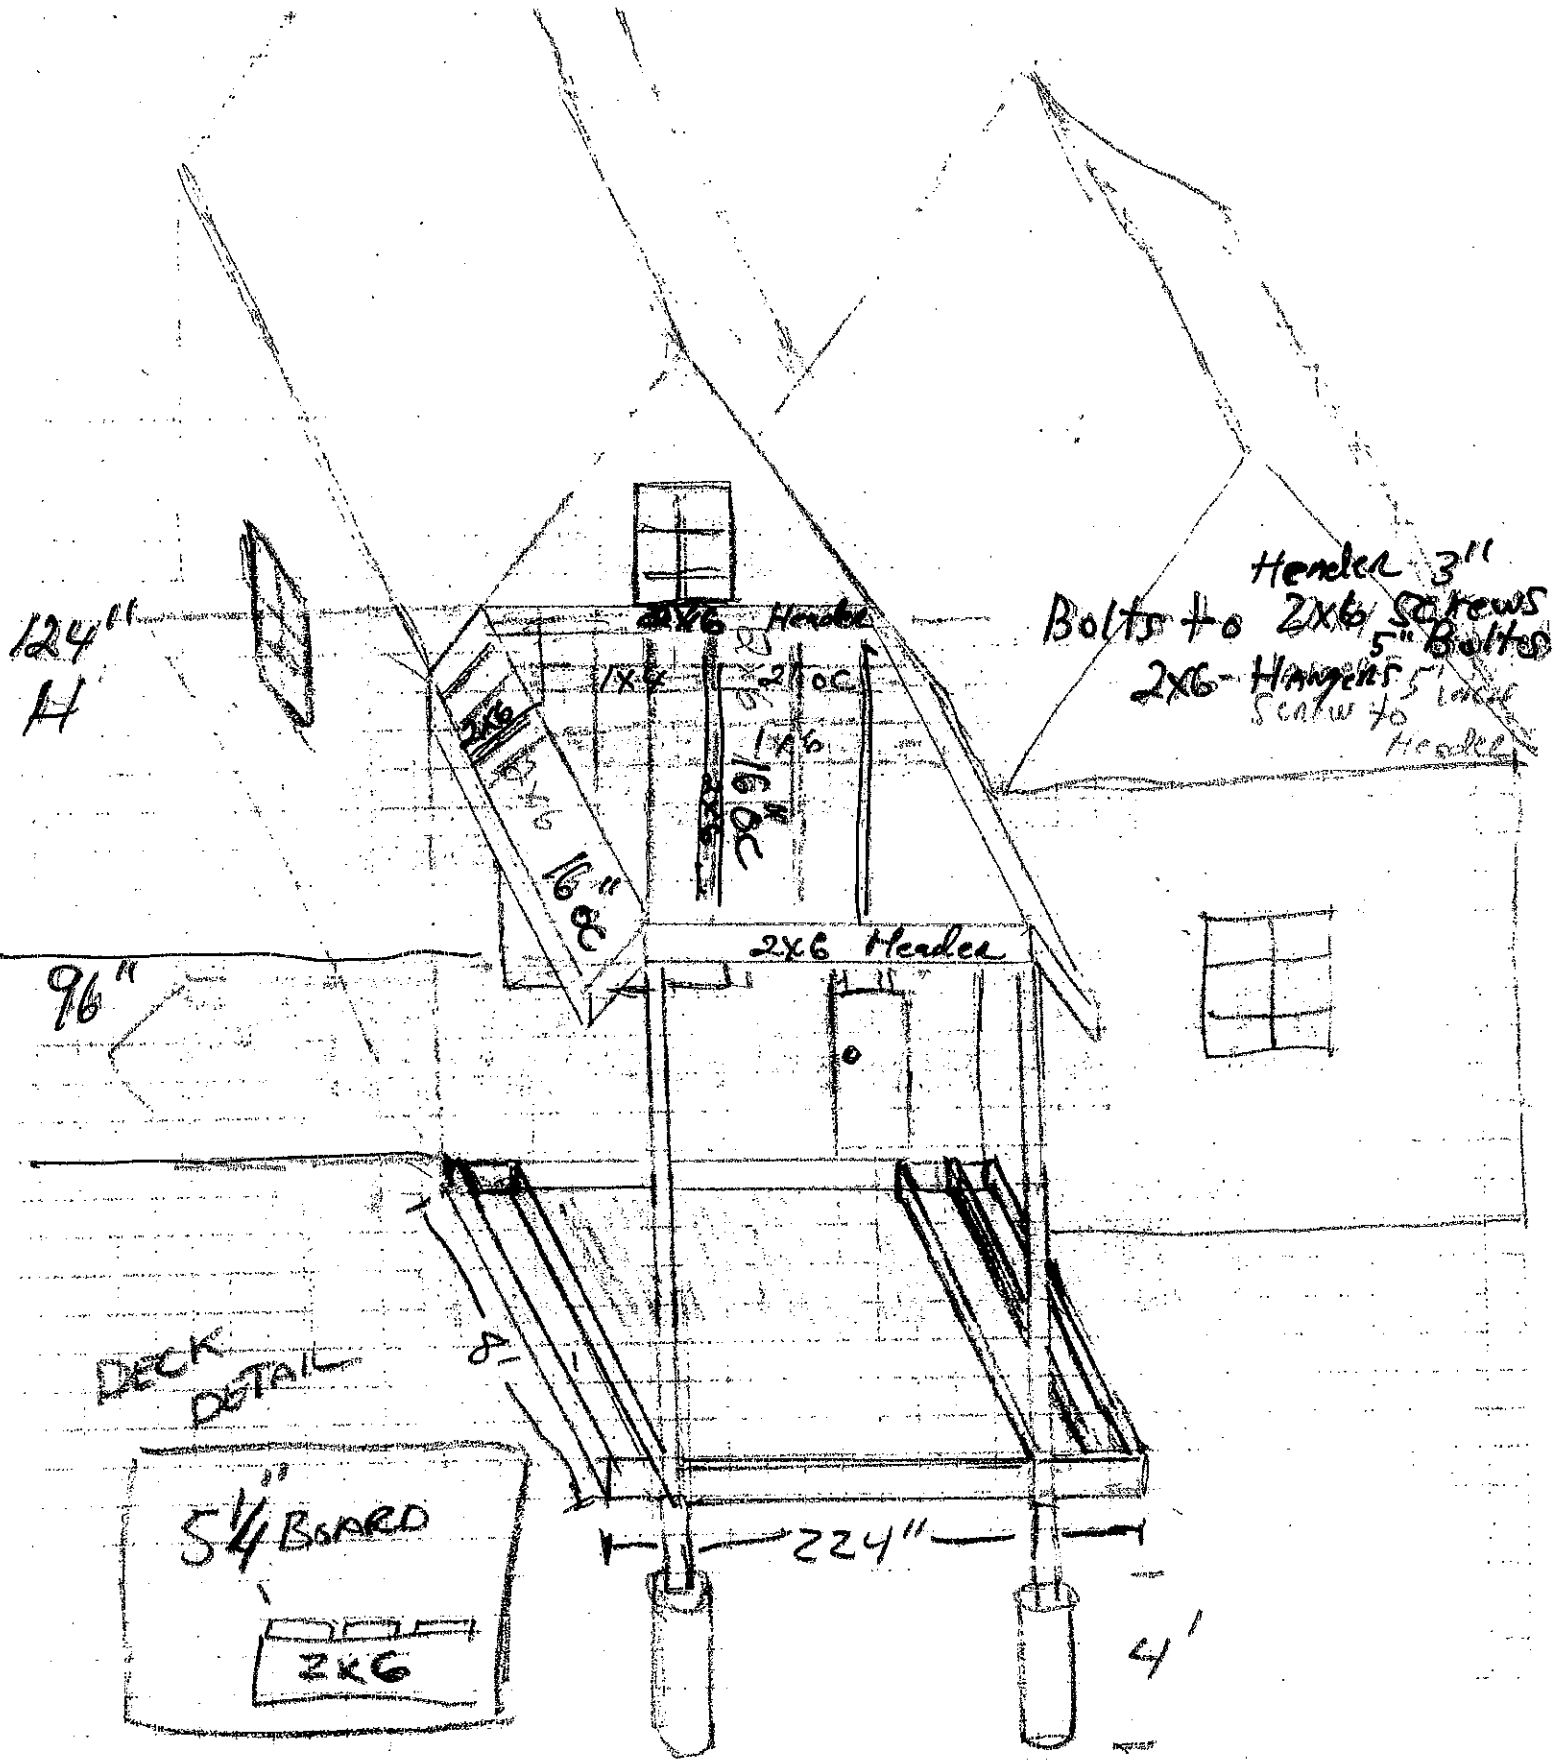 Header 3"
Bolts to 2x6 Screws
5" Bolts
2x6- Hangers 5"
Screw to
Header
124"
H
2x6 Header
1x4 2' oc
1x6
2x6
2x6
16" OC
16" OC
2x6 Header
96"
8'
DECK
DETAIL
5 1/4" BOARD
2x6
224"
4'